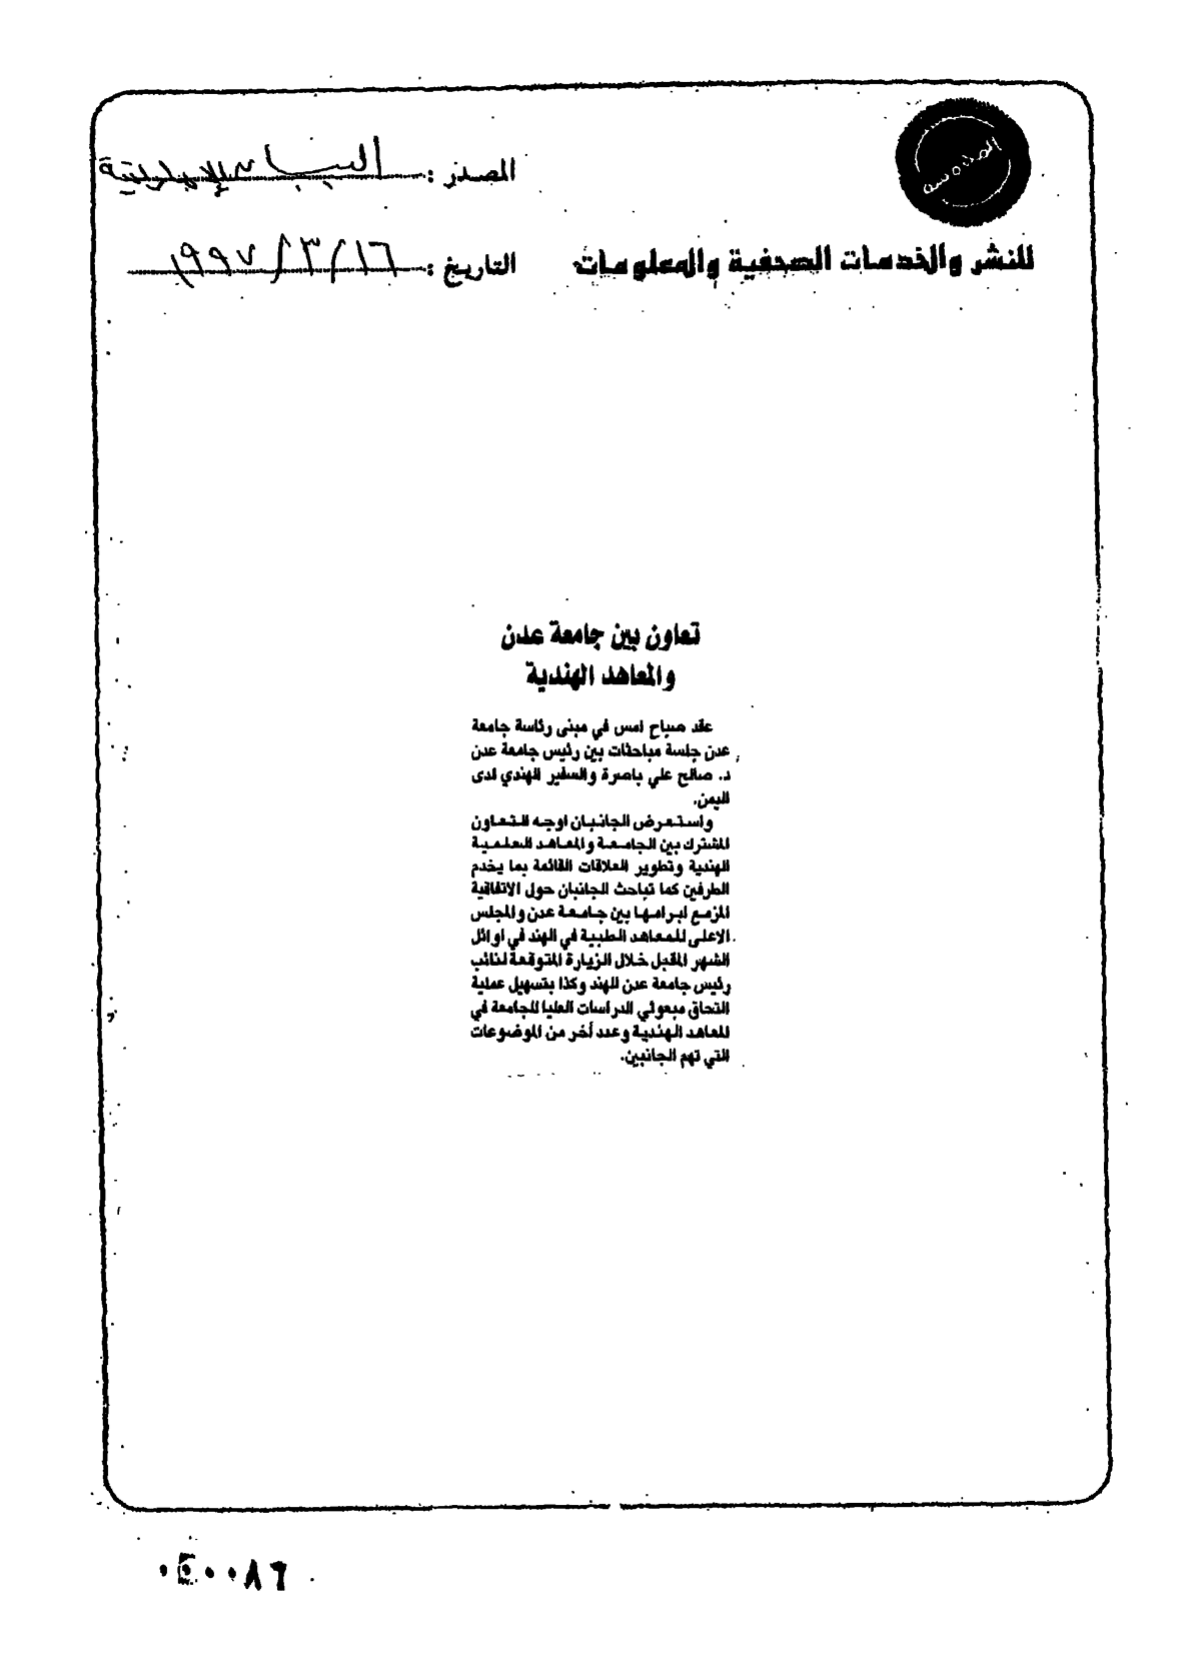 المصدر : البيان الإماراتية
للنشر والخدمات الصحفية والمعلومات
التاريخ : ١٦ / ٣ / ١٩٩٧
تعاون بين جامعة عدن
والمعاهد الهندية
عقد صباح امس في مبنى رئاسة جامعة
عدن جلسة مباحثات بين رئيس جامعة عدن
د. صالح علي باصرة والسفير الهندي لدى
اليمن.
واستعرض الجانبان اوجه التعاون
المشترك بين الجامعة والمعاهد العلمية
الهندية وتطوير العلاقات القائمة بما يخدم
الطرفين كما تباحث الجانبان حول الاتفاقية
المزمع ابرامها بين جامعة عدن والمجلس
الاعلى للمعاهد الطبية في الهند في اوائل
الشهر المقبل خلال الزيارة المتوقعة لنائب
رئيس جامعة عدن للهند وكذا بتسهيل عملية
التحاق مبعوثي الدراسات العليا للجامعة في
المعاهد الهندية وعدد أخر من الموضوعات
التي تهم الجانبين.